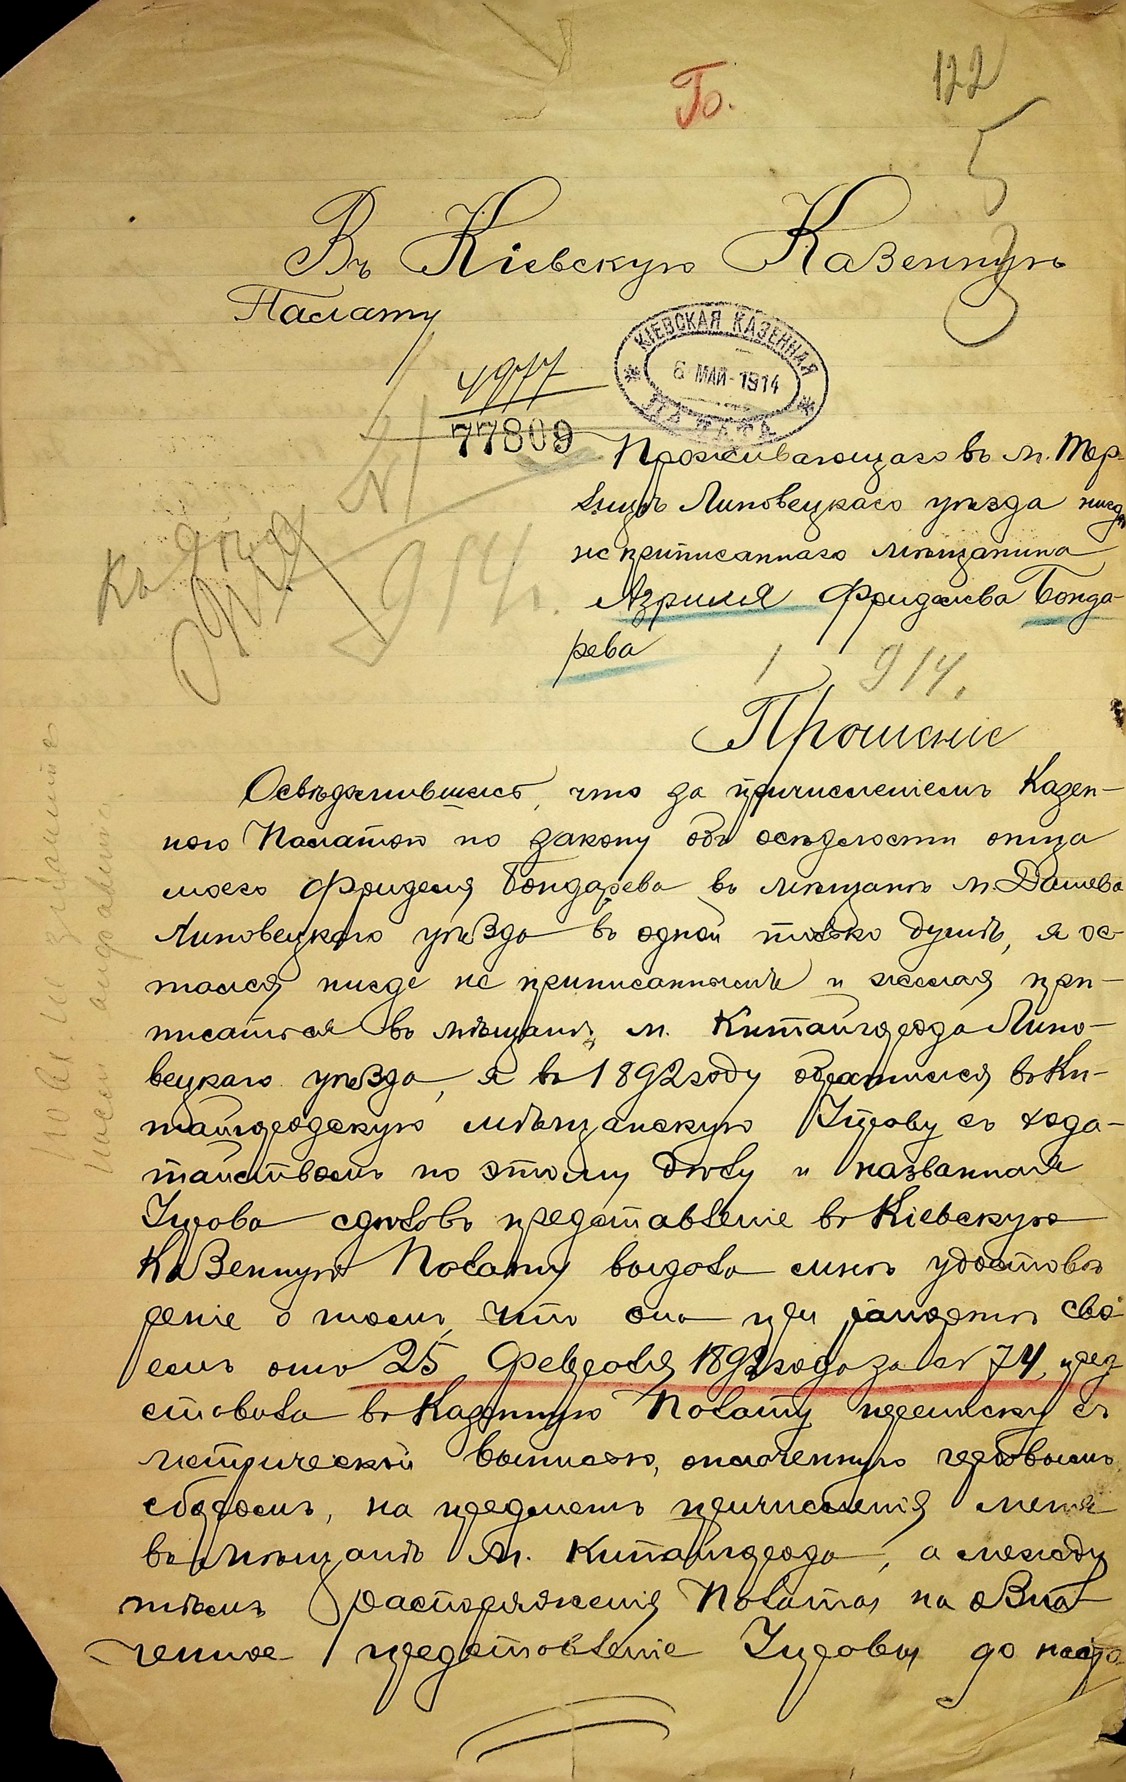 То.
122
5
3
Въ Кіевскую Казенную
Палату
КІЕВСКАЯ КАЗЕННАЯ
6 МАЙ 1914
ПАЛАТА
4977
77809
Проживающаго въ м. Тер-
лицѣ Липовецкаго уѣзда нигдѣ
не приписаннаго мѣщанина
Азриля Фриделева Бонда-
рева
къ
914 г.
1 914.
Прошеніе
Освѣдомившись, что за причисленіемъ Казен-
ною Палатою по закону объ осѣдлости отца
моего Фриделя Бондарева въ мѣщане м. Дашева
Липовецкаго уѣзда въ одной только душѣ, я ос-
тался нигде не приписаннымъ и желая при-
писаться въ мѣщане м. Китайгорода Липо-
вецкаго уѣзда, я въ 1892 году обратился въ Ки-
тайгородскую мѣщанскую Управу съ хода-
тайствомъ по этому дѣлу и названная
Управа сдѣлавъ представленіе въ Кіевскую
Казенную Палату выдала мнѣ удостовѣ
реніе о томъ, что она при рапортѣ сво
емъ отъ 25 Февраля 1892 года за № 74, пред
ставила въ Казенную Палату переписку съ
метрической выписью, оплоченную гербовымъ
сборомъ, на предметъ причисленія меня
въ мѣщане м. Китайгорода, а между
тѣмъ распоряженія Палаты на озна
ченное представленіе Управы до насто